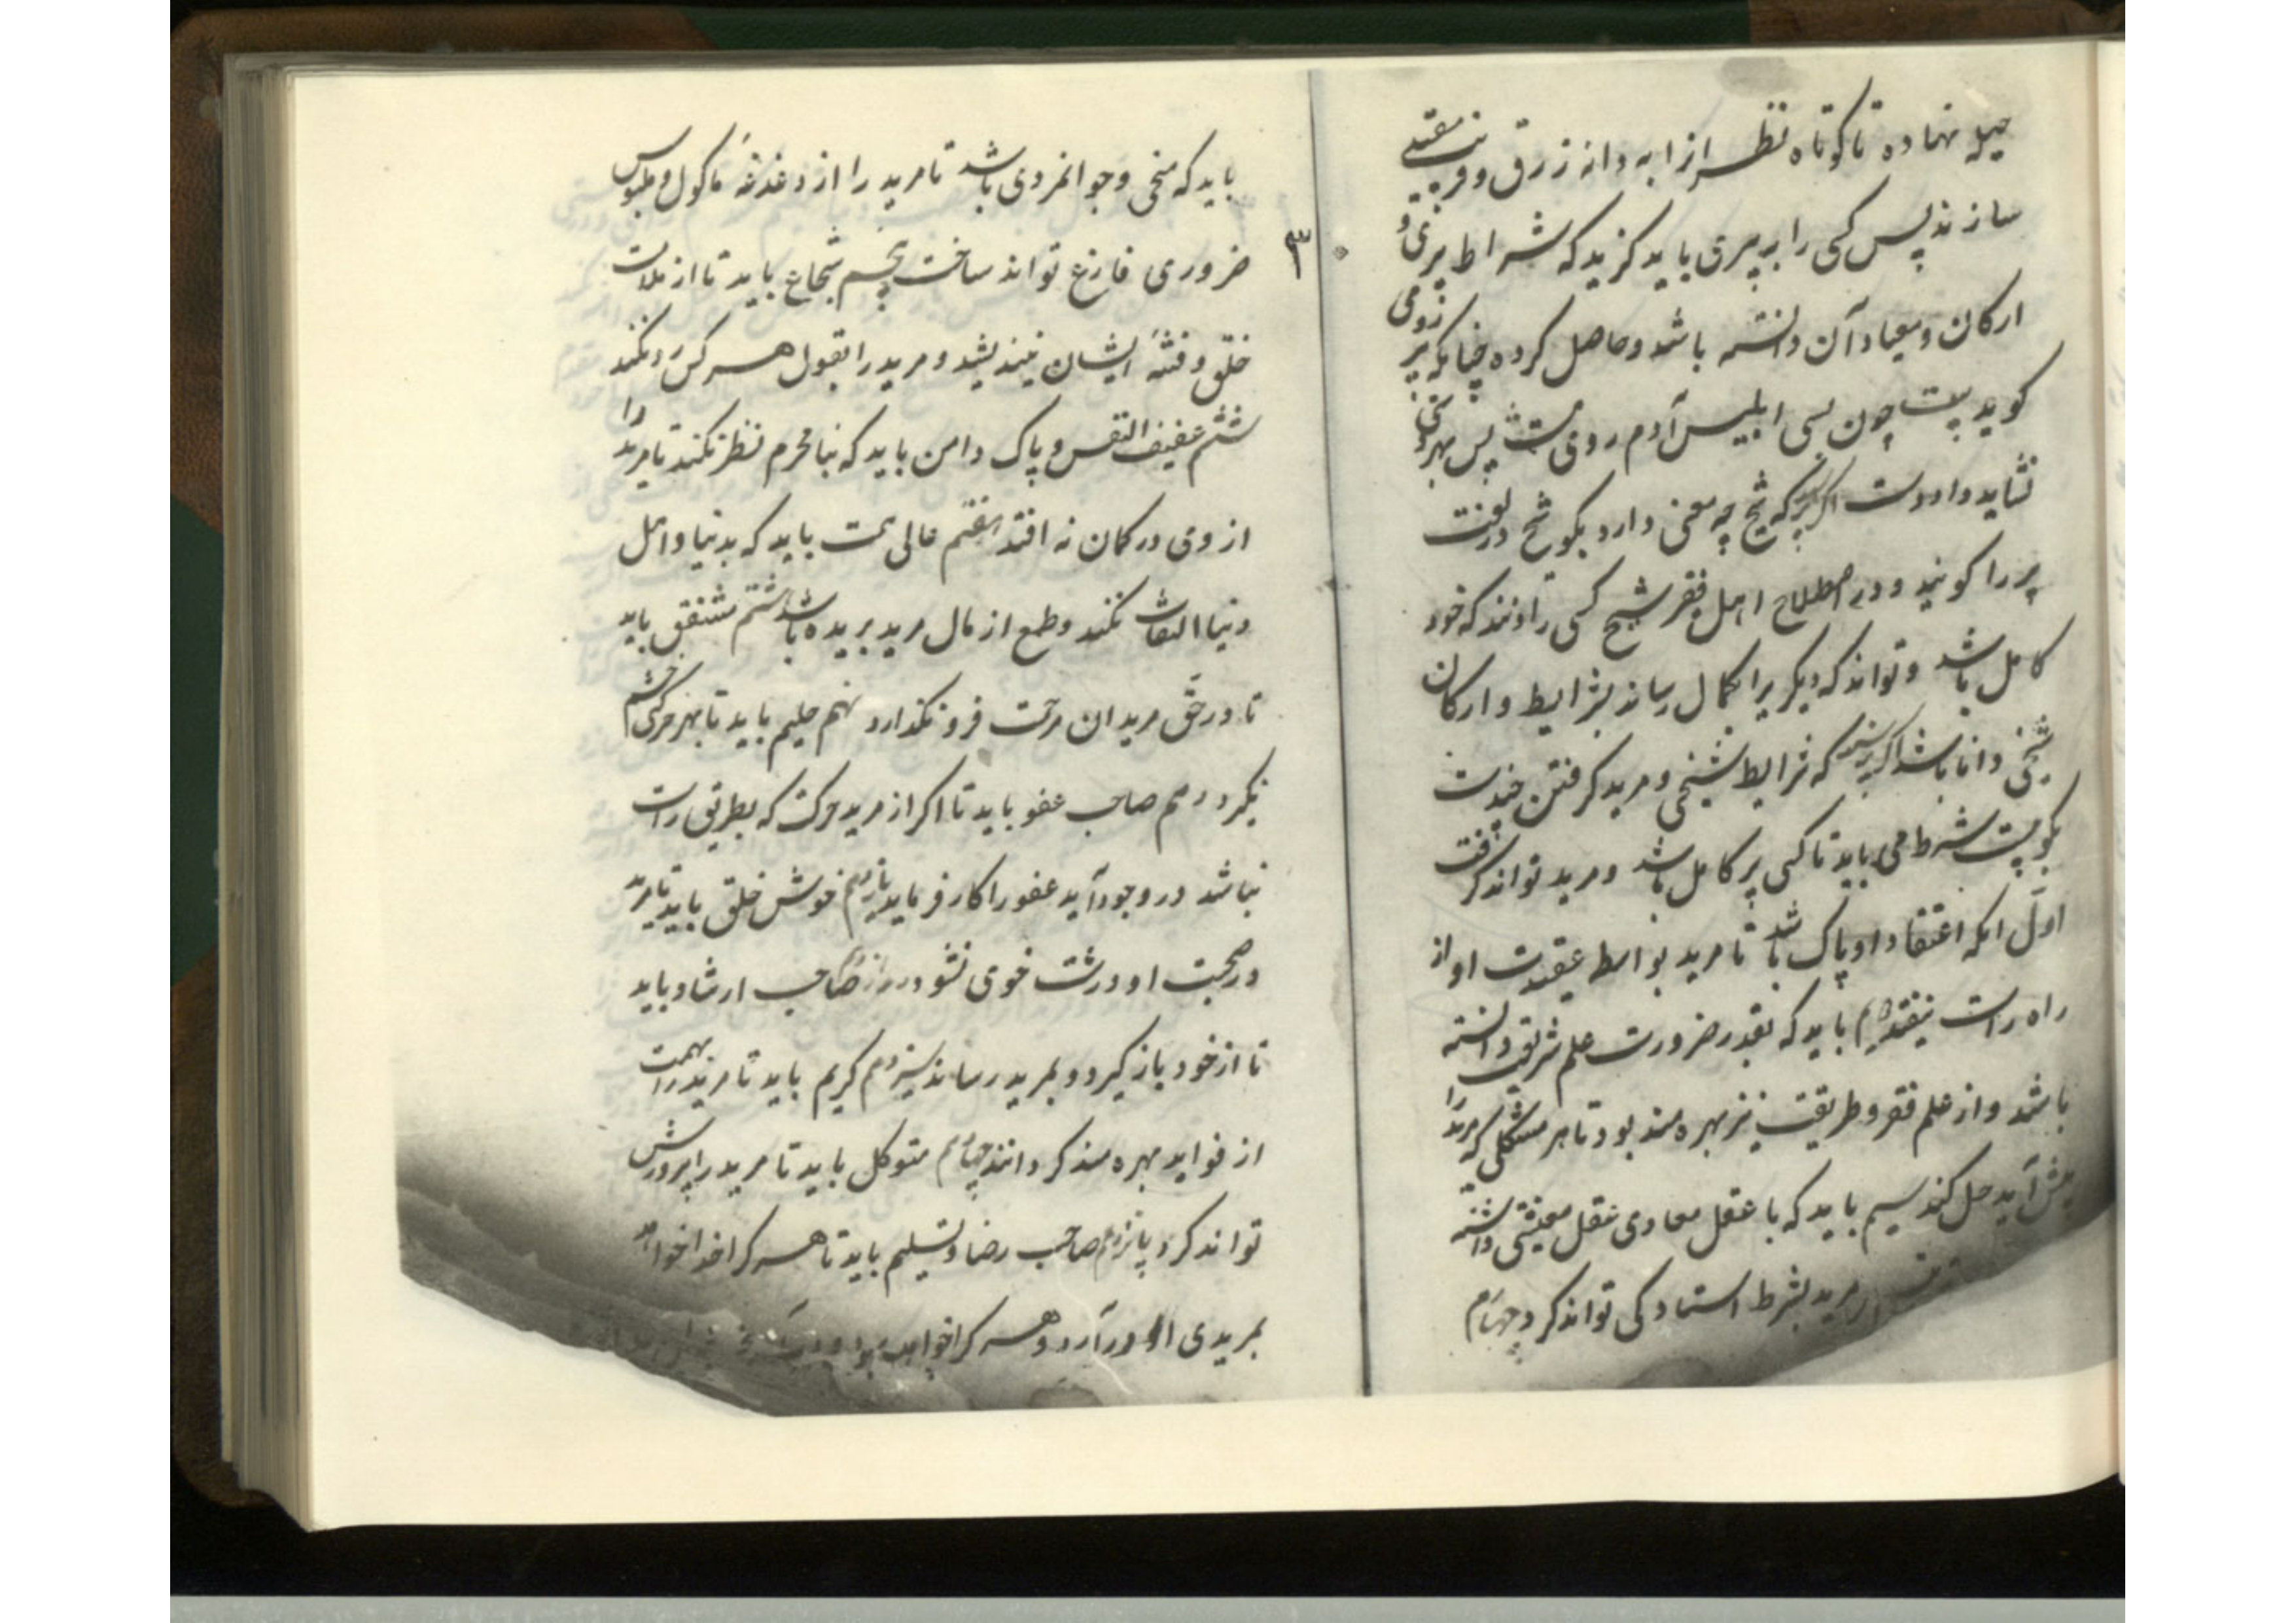 حیله نهاده تا کوتاه نظر انرا به دانه زرق و فریب مقید
سازند پس کسی را بپیری باید کزید که شرایط پیری و
ارکان و میعاد آن دانسته باشد و حاصل کرده چنانکه پیر رومی
کوید بیت چون بسی ابلیس آدم روی هست پس بهر دستی
نشاید داد دست اگر پرسند که شیخ چه معنی دارد بکو شیخ در لغت
پیر را کویند و در اصطلاح اهل فقر شیخ کسی را دانند که خود
کامل باشد و تواند که دیکریرا بکمال رساند بشرایط و ارکان
شیخی دانا باشد اگر پرسند که شرایط شیخی و مرید کرفتن چندست
بکو بیست شرط می باید تا کسی پیر کامل باشد و مرید تواند کرفت
اول انکه اعتقاد او پاک باشد تا مرید بواسطه عقیدت او از
راه راست نیفتد دویم باید که بقدر ضرورت علم شریعت دانسته
باشد و از علم فقر و طریقت نیز بهره مند بود تا هر مشکلی که مرید را
پیش آید حل کند سیم باید که با عقل معادی عقل معیشتی داشته
مرید بشرط استادکی تواند کرد چهارم
۳
باید که سخی و جوانمردی باشد تا مرید را از دغدغهٔ ماکول و ملبوس
ضروری فارغ تواند ساخت پنجم شجاع باید تا از ملامت
خلق و فتنهٔ ایشان نیندیشد و مرید را بقول هر کس رد نکند
ششم عفیف النفس و پاک دامن باید که بنا محرم نظر نکند تا مرید را
از وی در کمان نه افتد هفتم عالی همت باید که بدنیا و اهل
دنیا التفات نکند و طمع از مال مرید بریده باشد هشتم مشفق باید
تا در حق مریدان مرحمت فرو نکذارد نهم حلیم باید تا بهر حرکتی خشم
نکیرد دهم صاحب عفو باید تا اکر از مرید حرکت که بطریق راست
نباشد در وجود آید عفو را کار فرماید یازدهم خوش خلق باید تا مرید
در صحبت او درشت خوی نشود دوازدهم صاحب ارشاد باید
تا از خود باز کیرد و بمرید رساند سیزدهم کریم باید تا مرید را بهمت
از فواید بهره مند کرداند چهاردهم متوکل باید تا مرید را پرورش
تواند کرد پانزدهم صاحب رضا و تسلیم باید تا هر کرا خدا خواهد
بمریدی او در آرد و هر کرا خواهد